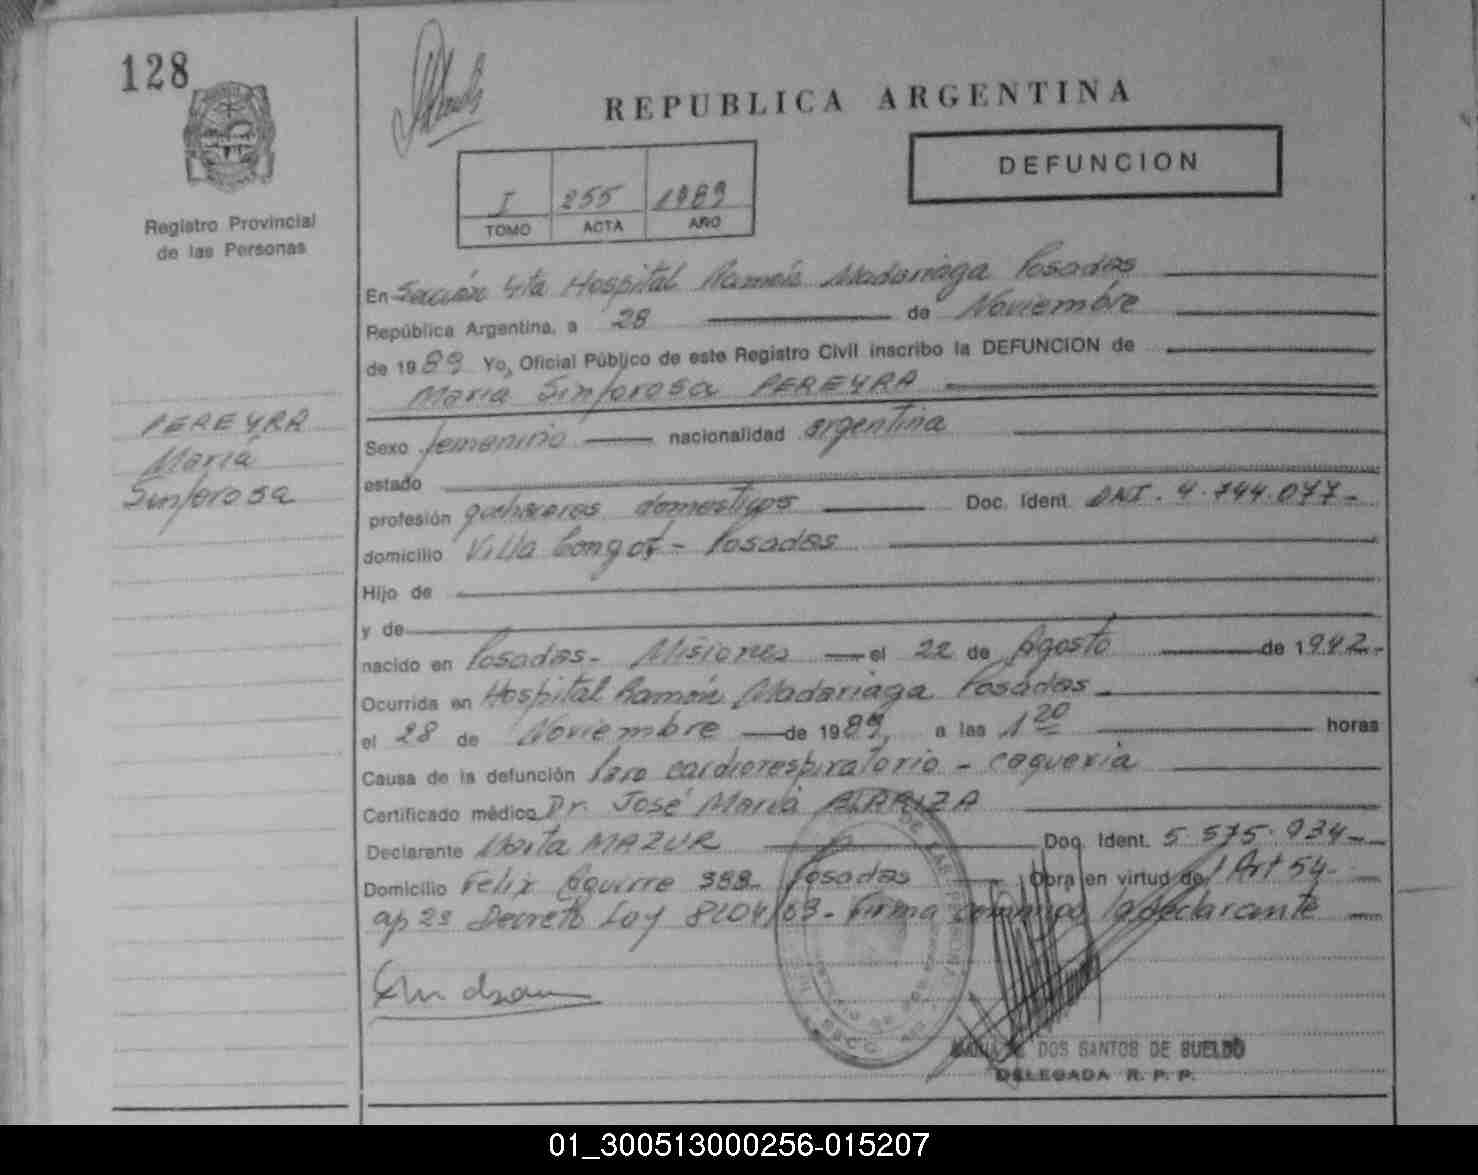 128
REPUBLICA ARGENTINA
DEFUNCION
I 255 1989
TOMO ACTA AÑO
Registro Provincial
de las Personas
En Sección 4ta Hospital Ramón Madariaga Posadas
República Argentina, a 28 de Noviembre
de 1989 Yo, Oficial Público de este Registro Civil inscribo la DEFUNCION de
Maria Sinforosa PEREYRA
PEREYRA
Maria
Sinforosa
Sexo femenino nacionalidad argentina
estado
profesión quehaceres domesticos Doc. Ident. DNI. 4.744.077-
domicilio Villa - Posadas
Hijo de
y de
nacido en Posadas - Misiones el 22 de Agosto de 1942-
Ocurrida en Hospital Ramón Madariaga Posadas
el 28 de Noviembre de 1989, a las 1 20 horas
Causa de la defunción Paro cardiorespiratorio - caquexia
Certificado médico Dr. José Maria
Declarante MAZUR Doc. Ident. 5.575.934-
Domicilio Felix Aguirre Posadas Obra en virtud de Art 54-
ap 2º Decreto Ley 8204/63- Firma conmigo la declarante
DOS SANTOS DE SUELDO
DELEGADA R. P. P.
01_300513000256-015207